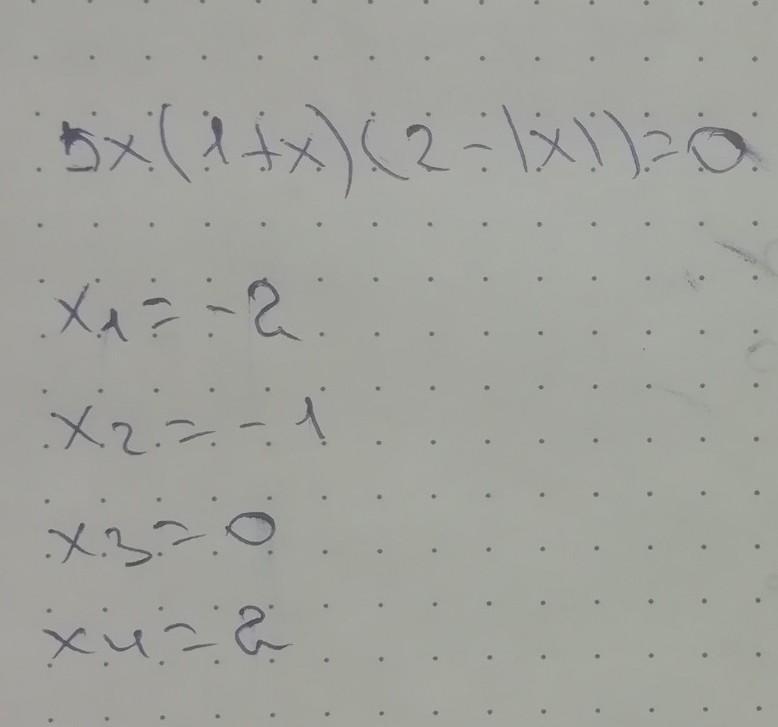 5x(1+x)(2-|x|)=0
x1=-2
x2=-1
x3=0
x4=2